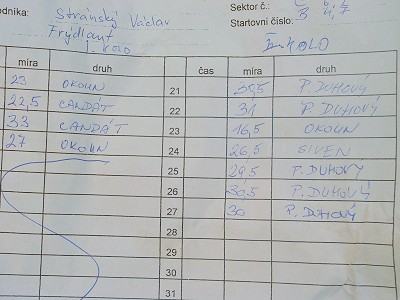 odníka: Stránský Václav
Sektor č.:
Frýdlant
Startovní číslo: B 4,7
I. kolo
II. KOLO
míra druh čas míra druh
23 OKOUN 21 35,5 P. DUHOVÝ
22,5 CANDÁT 22 31 P. DUHOVÝ
33 CANDÁT 23 16,5 OKOUN
27 OKOUN 24 26,5 SIVEN
25 29,5 P. DUHOVÝ
26 30,5 P. DUHOVÝ
27 30 P. DUHOVÝ
28
29
30
31